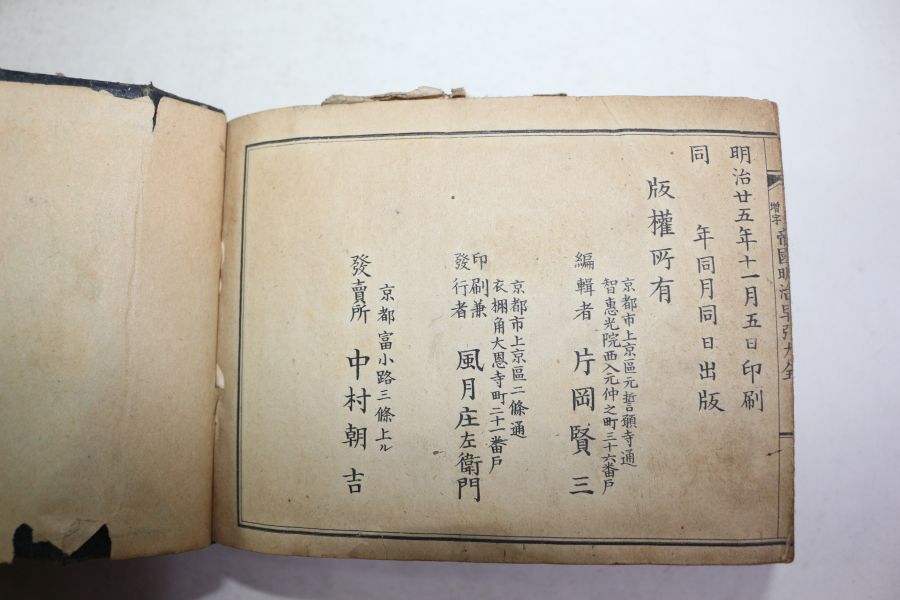 増字
帝國明治早引大全
明治廿五年十一月五日印刷
同　年同月同日出版
版權所有
京都市上京區元誓願寺通
智惠光院西入元仲之町三十六番戸
編輯者　片岡賢三
京都市上京區二條通
衣棚角大恩寺町二十一番戸
印刷兼
發行者　風月庄左衛門
京都富小路三條上ル
發賣所　中村朝吉